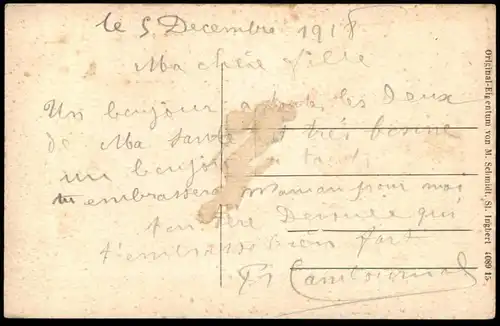 le 5 Decembre 1918
Ma chère fille
Un bonjour a les Deux
de Ma santé est très bonne
un bonjour a
tu embrassera Maman pour moi
ton père Devoué qui
t'embrasse bien fort
Original-Eigentum von M. Schmidt, St. Ingbert 1089 15